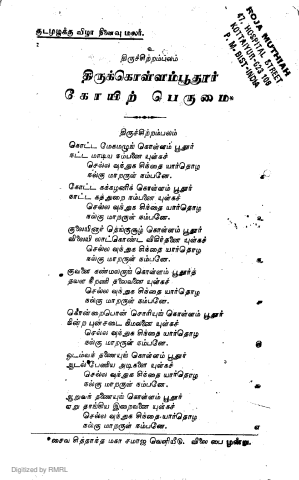 குடமுழுக்கு விழா நினைவு மலர்.
ROJA MUTHIAH
47, HOSPITAL STREET
KOTTAIYUR-623 106
P. M. DIST-INDIA
உ
திருச்சிற்றம்பலம்
திருக்கொள்ளம்பூதூர்
கோயிற் பெருமை*
திருச்சிற்றம்பலம்
கொட்ட மேகமழுங் கொள்ளம் பூதூர்
நட்ட மாடிய நம்பனை யுள்கச்
செல்ல வுந்துக சிந்தை யார்தொழ
நல்கு மாறருள் நம்பனே.
கோட்ட கக்கழனிக் கொள்ளம் பூதூர்
நாட்ட கத்துறை நம்பனை யுள்கச்
செல்ல வுந்துக சிந்தை யார்தொழ
நல்கு மாறருள் நம்பனே.
குலையினார் தெங்குசூழ் கொள்ளம் பூதூர்
விலையி லாட்கொண்ட விகிர்தனை யுள்கச்
செல்ல வுந்துக சிந்தை யார்தொழ
நல்கு மாறருள் நம்பனே.
குவளை கண்மலருங் கொள்ளம் பூதூர்த்
தவள நீறணி தலைவனை யுள்கச்
செல்ல வுந்துக சிந்தை யார்தொழ
நல்கு மாறருள் நம்பனே.
கொன்றைபொன் சொரியுங் கொள்ளம் பூதூர்
நின்ற புன்சடை நிமலனை யுள்கச்
செல்ல வுந்துக சிந்தை யார்தொழ
நல்கு மாறருள் நம்பனே.
ஓடம்வந் தணையுங் கொள்ளம் பூதூர்
ஆடல் பேணிய அடிகளை யுள்கச்
செல்ல வுந்துக சிந்தை யார்தொழ
நல்கு மாறருள் நம்பனே.
ஆறுவந் தணையுங் கொள்ளம் பூதூர்
ஏறு தாங்கிய இறைவனை யுள்கச்
செல்ல வுந்துக சிந்தை யார்தொழ
நல்கு மாறருள் நம்பனே.
*சைவ சித்தாந்த மகா சமாஜ வெளியீடு. விலை பை மூன்று.
Digitized by RMRL